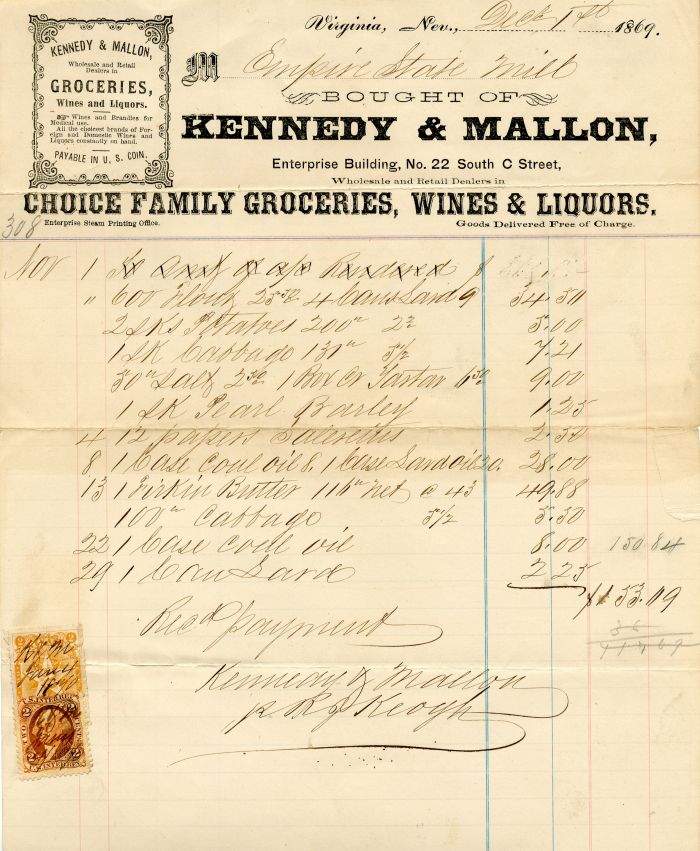 Virginia, Nev., Decr 1st 1869.
KENNEDY & MALLON,
Wholesale and Retail
Dealers in
GROCERIES,
Wines and Liquors.
Wines and Brandies for
Medical use.
All the choicest brands of For-
eign and Domestic Wines and
Liquors constantly on hand.
PAYABLE IN U. S. COIN.
M Empire State Mill
BOUGHT OF
KENNEDY & MALLON,
Enterprise Building, No. 22 South C Street,
Wholesale and Retail Dealers in
CHOICE FAMILY GROCERIES, WINES & LIQUORS.
308
Enterprise Steam Printing Office.
Goods Delivered Free of Charge.
Nov 1 To Amt of a/c Rendered $
" 600 Flour 25 50 4 Cans Lard 9 34.50
2 sks Potatoes 200 " 2 1/2 5.00
1 sk Cabbage 131 " 5 1/2 7.21
50 " Salt 2 50 1 Box Cr Tartar 6 50 9.00
1 sk Pearl Barley 1.25
4 12 papers 2.50
8 1 Case coal oil 8. 1 Case Lard oil 20. 28.00
13 1 Firkin Butter 116 " net @ 43 49.88
100 " Cabbage 5 1/2 5.50
22 1 Case coal oil 8.00 150 84
29 1 Can Lard 2 25
$153.09
36
117 69
Recd payment
Kennedy & Mallon
p. R J Keogh
U.S. INTER. REV.
2 2
TWO CENTS
U.S. INTER. REV.